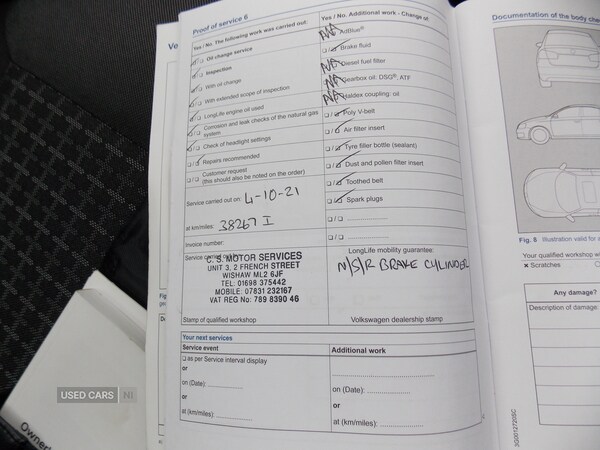 Proof of service 6
Yes / No. The following work was carried out:
☑/☐ Oil change service
☑/☐ Inspection
☑/☐ With oil change
☑/☐ With extended scope of inspection
☑/☐ LongLife engine oil used
☑/☐ Corrosion and leak checks of the natural gas
system
☑/☐ Check of headlight settings
☐/☑ Repairs recommended
☐/☐ Customer request
(this should also be noted on the order)
Service carried out on: 4-10-21
at km/miles: 38267 I
Invoice number:
Service carried out by:
C. S. MOTOR SERVICES
UNIT 3, 2 FRENCH STREET
WISHAW ML2 6JF
TEL: 01698 375442
MOBILE: 07831 232167
VAT REG No: 789 8390 46
Stamp of qualified workshop
Yes / No. Additional work - Change of:
N/A AdBlue®
☐/☑ Brake fluid
N/A Diesel fuel filter
N/A Gearbox oil: DSG®, ATF
N/A Haldex coupling: oil
☐/☑ Poly V-belt
☐/☑ Air filter insert
☐/☑ Tyre filler bottle (sealant)
☐/☑ Dust and pollen filter insert
☐/☑ Toothed belt
☐/☑ Spark plugs
☐/☐ ....................
☐/☐ ....................
LongLife mobility guarantee:
N/S/R BRAKE CYLINDER
Volkswagen dealership stamp
Your next services
Service event
☐ as per Service interval display
or
on (Date): ..................
or
at (km/miles): ..................
Additional work
..................
on (Date): ..................
or
at (km/miles): ..................
Documentation of the body che
Fig. 8 Illustration valid for
Your qualified workshop
× Scratches
Any damage?
Description of damage:
3G0012720SC
Ve
Fig
Owner
USED CARS NI